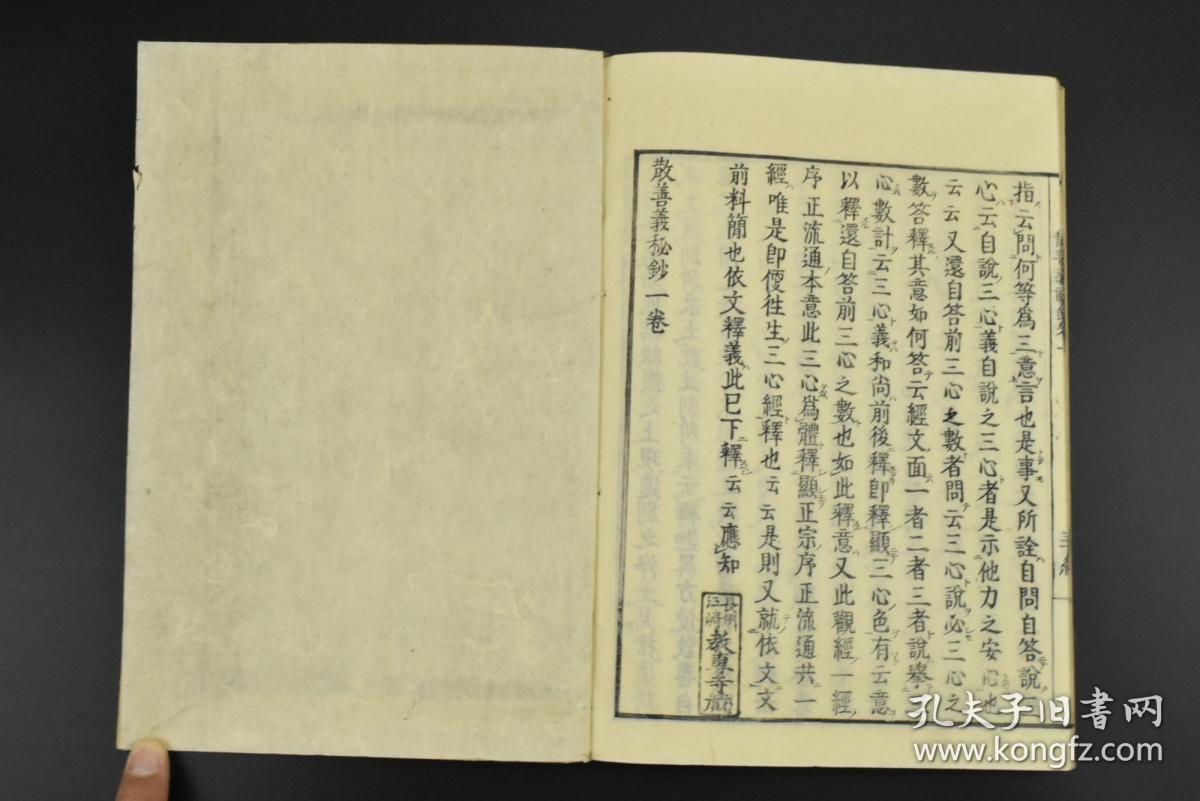 指云問何等爲三意言也是事又所詮自問自答說三
心云自說三心義自說之三心者是示他力之安心也
云云又還自答前三心之數者問云三心說必三心之
數答釋其意如何答云經文面一者二者三者說舉
心數計云三心義和尚前後釋卽釋顯三心色有云意
以釋還自答前三心之數也如此釋意又此觀經一經
序正流通本意此三心爲體釋顯正宗序正流通共一
經唯是卽便徃生三心經釋也云云是則又就依文文
前料簡也依文釋義此已下釋云云應知
散善義秘鈔一卷
長州
教專寺藏
孔夫子旧书网
www.kongfz.com